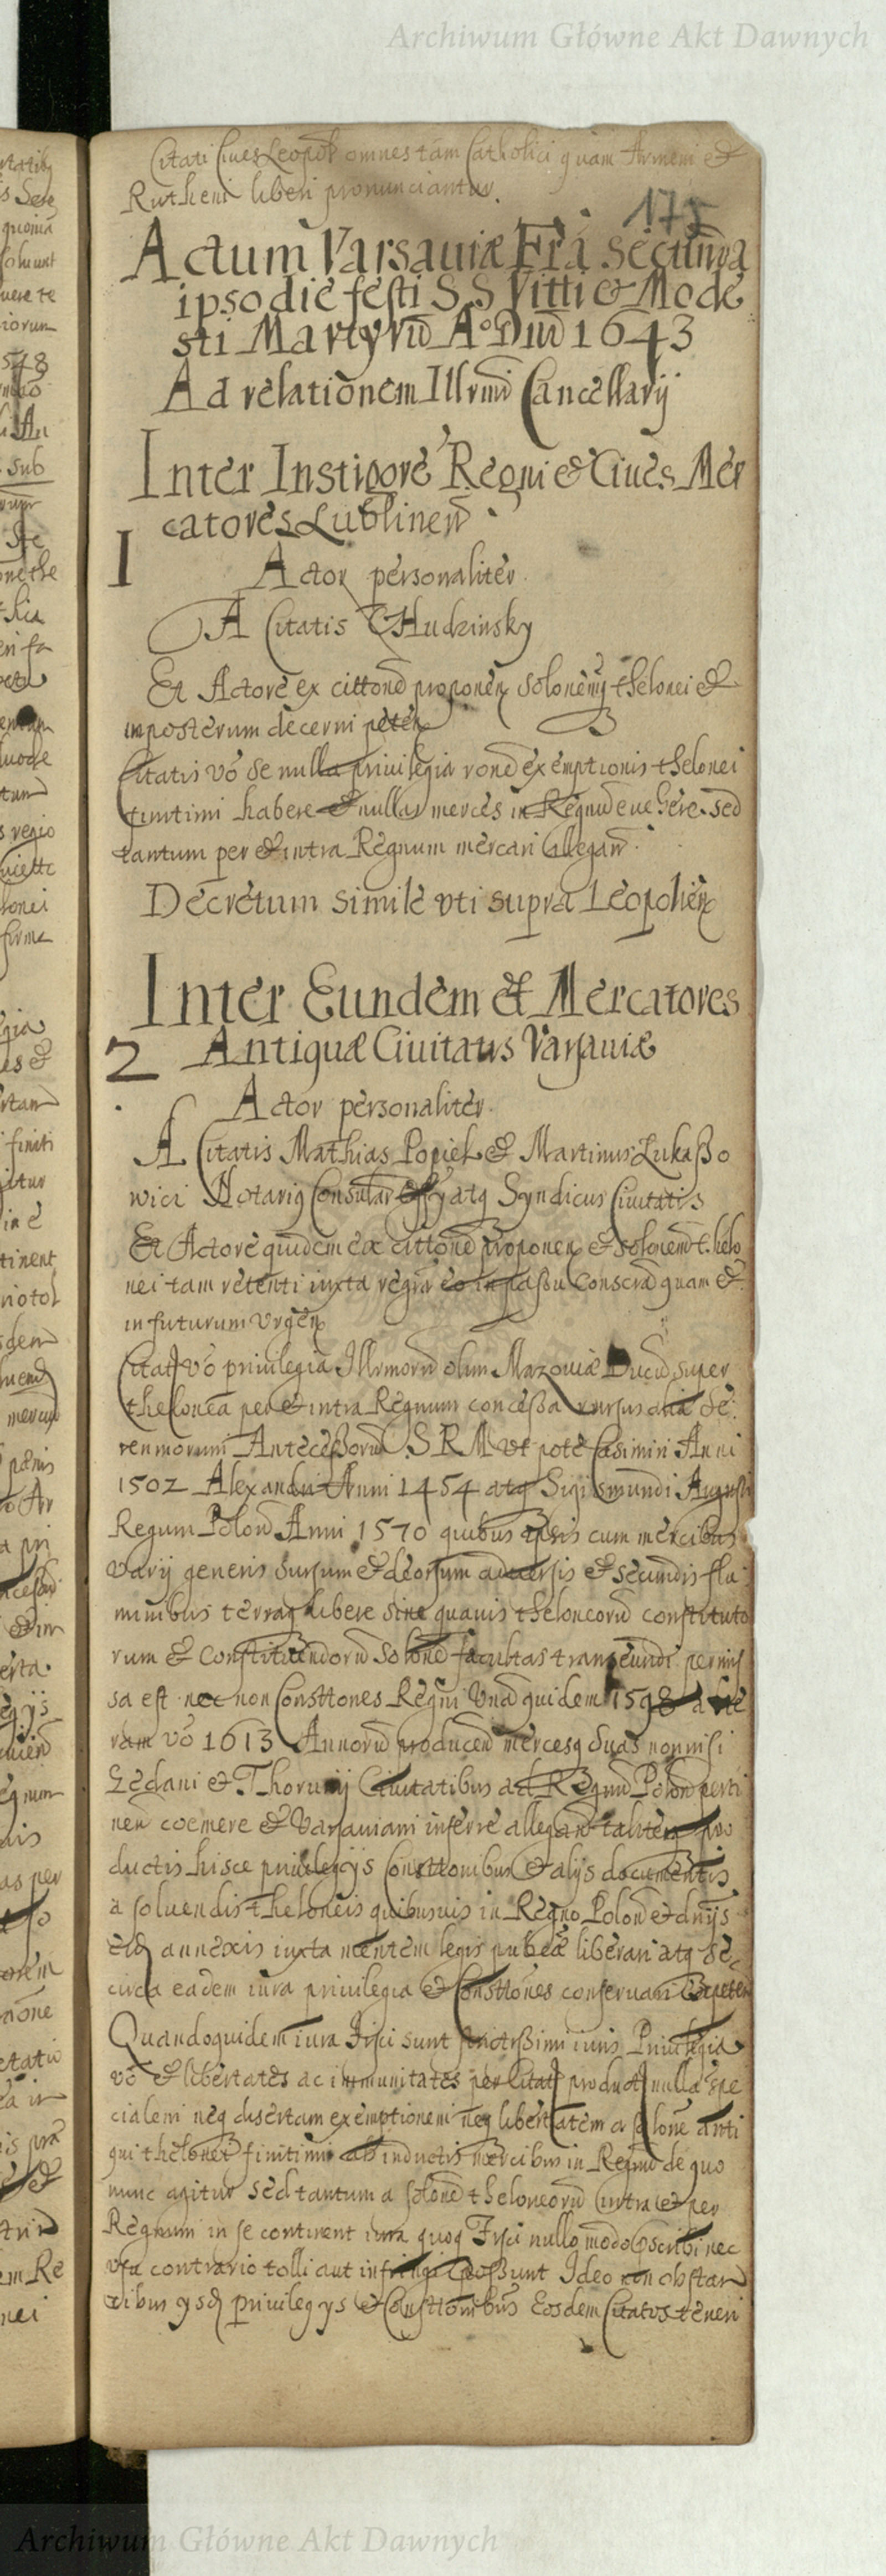 Archiwum Główne Akt Dawnych
Citati Cives Leopol omnes tam Catholici quam Armeni et
Rutheni liberi pronunciantur.
175
Actum Varsaviæ Fra secunda
ipso die festi S S Vitti et Mode
sti Martyrũ Ao Dni 1643
Ad relationem Illrmi Cancellarij
Inter Instigore Regni et Cives Mer
catores Lublinen
1
Actor personaliter
A Citatis Hudzinsky
Et Actore ex cittone proponen solonem thelonei et
imposterum decerni peten
Citatis vo se nulla privilegia rone exemptionis thelonei
finitimi habere et nullas merces in Regnũ evehere sed
tantum per et intra Regnum mercari allegan
Decretum simile uti supra Leopolien
Inter Eundem et Mercatores
2 Antiquæ Civitatis Varsaviæ
Actor personaliter
A Citatis Mathias Popiel et Martinus Lukaßo
wici Notarius Consular atq Syndicus Civitatis
Et Actore quidem ex cittone proponen et solonem thelo
nei tam retenti iuxta regra eo in paßu conscra quam et
in futurum urgen
Citat vo privilegia Illrmorũ olim Mazoviæ Ducũ super
thelonea per et intra Regnum conceßa rursus alia se
renmorum Anteceßorũ S R M ut pote Casimiri Anni
1502 Alexandri Anni 1454 atq Sigismundi Augusti
Regum Polon Anni 1570 quibus ipsis cum mercibus
varij generis sursum et deorsum adversis et secundis flu
minibus terraq libere sine quavis theloneorũ constituto
rum et constituendorũ solone facultas transeundi permis
sa est nec non Consttiones Regni Una quidem 1598 alte
ram vo 1613 Annorũ producen mercesq suas nonnisi
Gedani et Thorunij Civitatibus ad Regnũ Polon perti
nen coemere et Varsaviam inferre allegan taliter pro
ductis hisce privilegijs Consttionibus et alijs documentis
a solvendis theloneis quibusvis in Regno Polon et dnijs
eid annexis iuxta mentem legis publicæ liberari atq se
circa eadem iura privilegia et Consttiones conservari peten
Quandoquidem iura Fisci sunt strictißimi iuris Privilegia
vo et libertates ac immunitates per Citat product nulla spe
cialem neq disertam exemptionem neq libertatem a solone anti
qui thelonei finitimi ab inductis mercibus in Regnũ de quo
nunc agitur sed tantum a solone theloneorũ intra et per
Regnum in se continent iura quoq Fisci nullo modo pscribi nec
usu contrario tolli aut infringi poßunt Ideo non obstan
tibus ysd privilegys et Consttionibus Eosdem Citatos teneri
Archiwum Główne Akt Dawnych